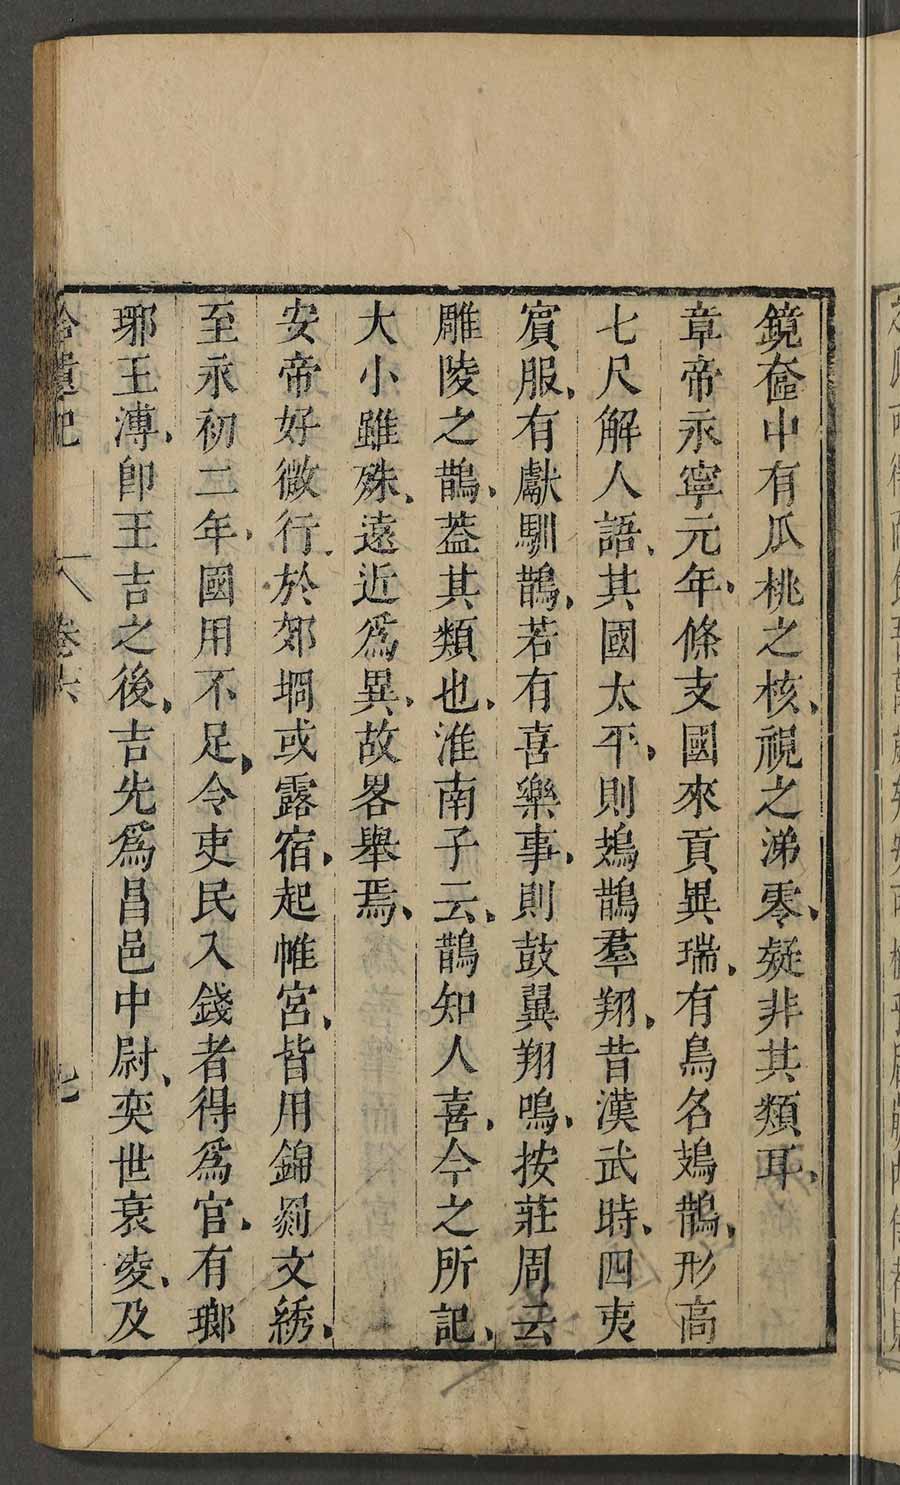 鏡奩中有瓜桃之核視之涕零疑非其類耳
章帝永寧元年條支國來貢異瑞有鳥名鳷鵲形高
七尺解人語其國太平則鳷鵲羣翔昔漢武時四夷
賓服有獻馴鵲若有喜樂事則鼓翼翔鳴按莊周云
雕陵之鵲蓋其類也淮南子云鵲知人喜今之所記
大小雖殊遠近爲異故畧舉焉
安帝好微行於郊坰或露宿起帷宮皆用錦罽文綉
至永初二年國用不足令吏民入錢者得爲官有瑯
琊王溥卽王吉之後吉先爲昌邑中尉奕世衰凌及
拾遺記 卷六 七